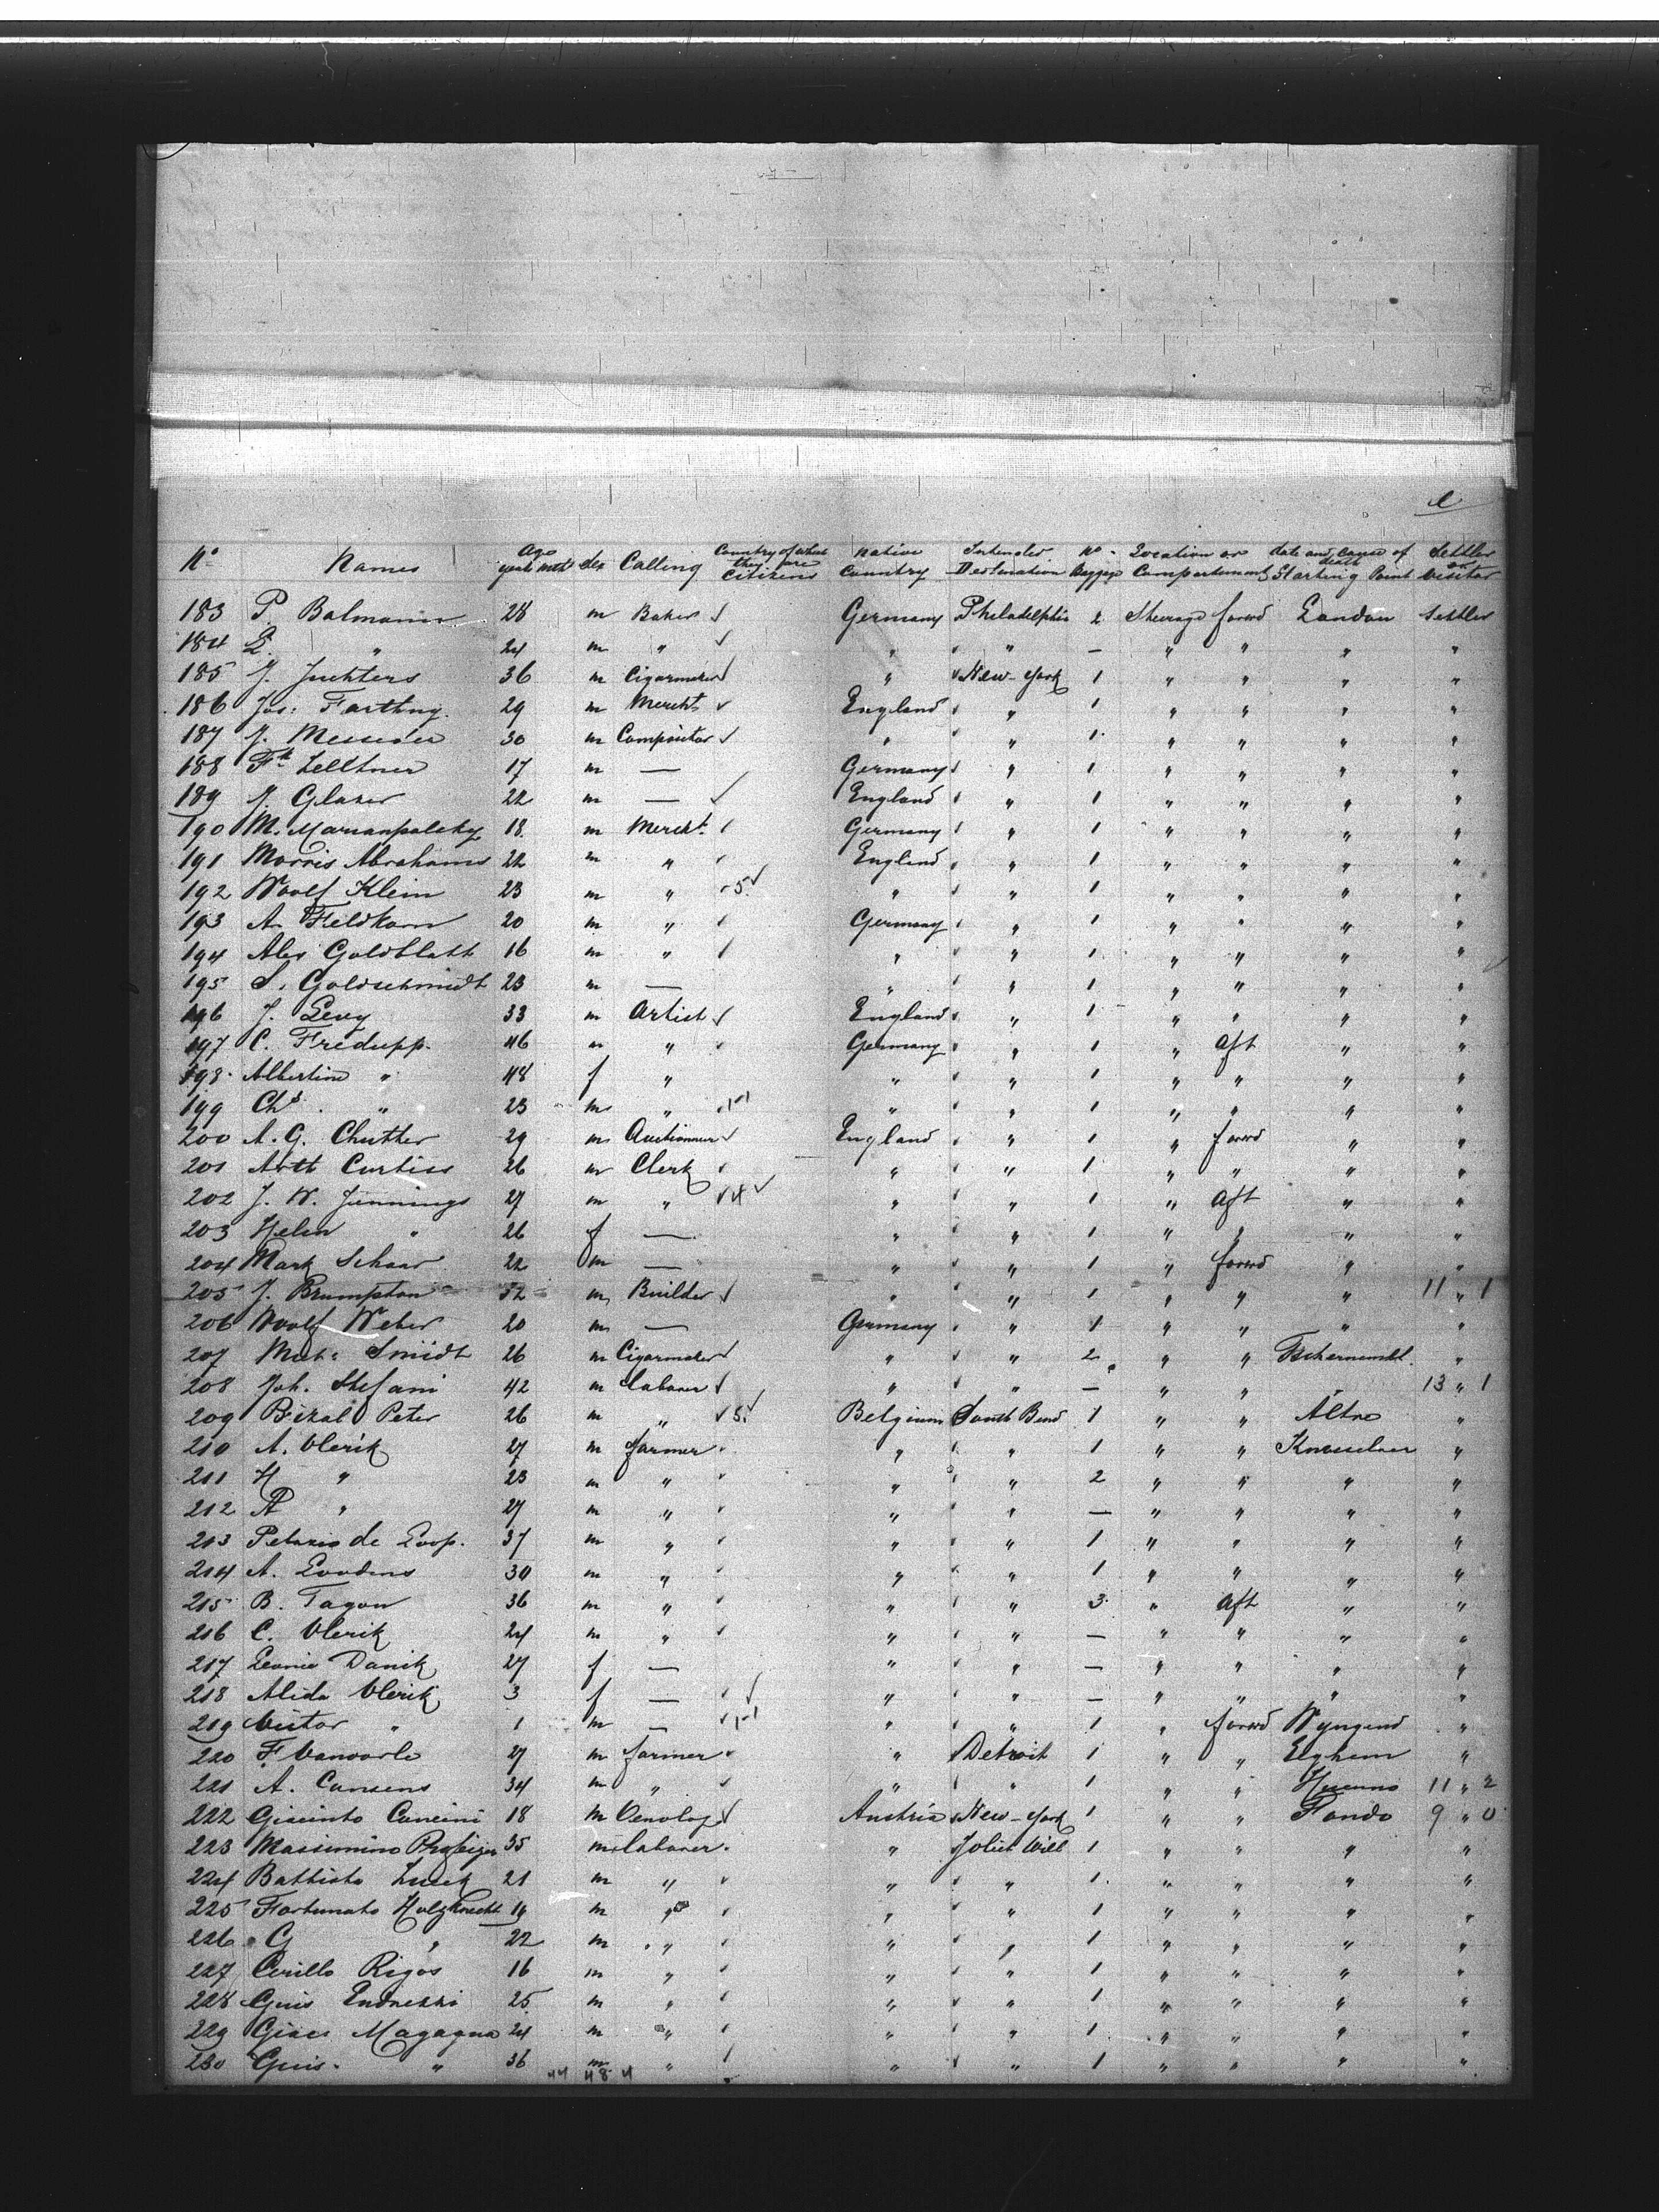 e
No Names Age years mths Sex Calling Country of which they are Citizens Native Country Intended Destination No Baggage Location or Compartment date and cause of death Starting Point Settler or Visitor
183 P. Balmann 28 m Baker ✓ Germany Philadelphia 2 Steerage forwd London Settler
184 L. " 24 m " ✓ " " — " " " "
185 J. Juchters 36 m Cigarmaker ✓ " New-York 1 " " " "
186 Jos: Farthng. 29 m Mercht ✓ England " 1 " " " "
187 J. 30 m Compositor ✓ " " 1 " " " "
188 Fk Zelltner 17 m — Germany " 1 " " " "
189 J. Glaser 22 m — ✓ England " 1 " " " "
190 M. Marianpolsky 18 m Mercht. Germany " 1 " " " "
191 Morris Abrahams 22 m " England " 1 " " " "
192 Woolf Klein 23 m " 5 ✓ " " 1 " " " "
193 A. Feldkorn 20 m " Germany " 1 " " " "
194 Alex Goldblatt 16 m " " " 1 " " " "
195 S. Goldschmidt 23 m — " " 1 " " " "
196 J. Levy 33 m Artist ✓ England " 1 " " " "
197 C. Fredupp. 46 m " Germany " 1 " Aft " "
198 Albertine " 48 f " " " 1 " " " "
199 Chs. " 23 m " 1-1 " " 1 " " " "
200 A. G. Chutter 29 m Auctionner ✓ England " 1 " forwd " "
201 Artt Curtiss 26 m Clerk " " 1 " " " "
202 J. W. Jennings 27 m " ✓ 4 ✓ " " 1 " Aft " "
203 Helen " 26 f — " " 1 " " " "
204 Mark Schaar 22 m — " " 1 " forwd " "
205 J. Brumpton 32 m Builder ✓ " " 1 " " " 11 " 1
206 Woolf Weber 20 m — Germany " 1 " " " "
207 Smidt 26 m Cigarmaker ✓ " " 2 " " Tschernembl. "
208 Joh. Stefani 42 m Laborer ✓ " " — " " " 13 " 1
209 Bizal Peter 26 m " ✓ 5 ✓ Belgium South Bend 1 " " Altre "
210 A. Vlerik 27 m farmer " " 1 " " Knesselaer "
211 H " 23 m " " " 2 " " " "
212 A " 27 m " " " — " " " "
213 de Loop. 37 m " " " 1 " " " "
214 A. Loodens 30 m " " " 1 " " " "
215 B. Tagon 36 m " " " 3 " Aft " "
216 C. Vlerik 24 m " " " — " " " "
217 Leonie Danik 27 f — " " — " " " "
218 Alida Vlerik 3 f — ✓ " " — " " " "
219 Victor " 1 m — ✓ 1-1 " " 1 " forwd Wyngend "
220 F. Vanoorle 27 m farmer " Detroit 1 " " Elghem "
221 A. Cansens 34 m " ✓ " " 1 " " 11 " 2
222 Giacinto Cancini 18 m Oenolog ✓ Austria New-York 1 " " Fondo 9 " 0
223 Massimino 35 m Laborer " Joliet Will 1 " " " "
224 Battista 21 m " " " 1 " " " "
225 Fortunato Holzknecht 19 m " " " 1 " " " "
226 G " 22 m " " " 1 " " " "
227 Cirillo Rigos 16 m " " " 1 " " " "
228 Guis Endrezzi 25 m " " " 1 " " " "
229 Giac Magagna 24 m " " " 1 " " " "
230 Guis. " 36 m " " " 1 " " " "
44 48 4